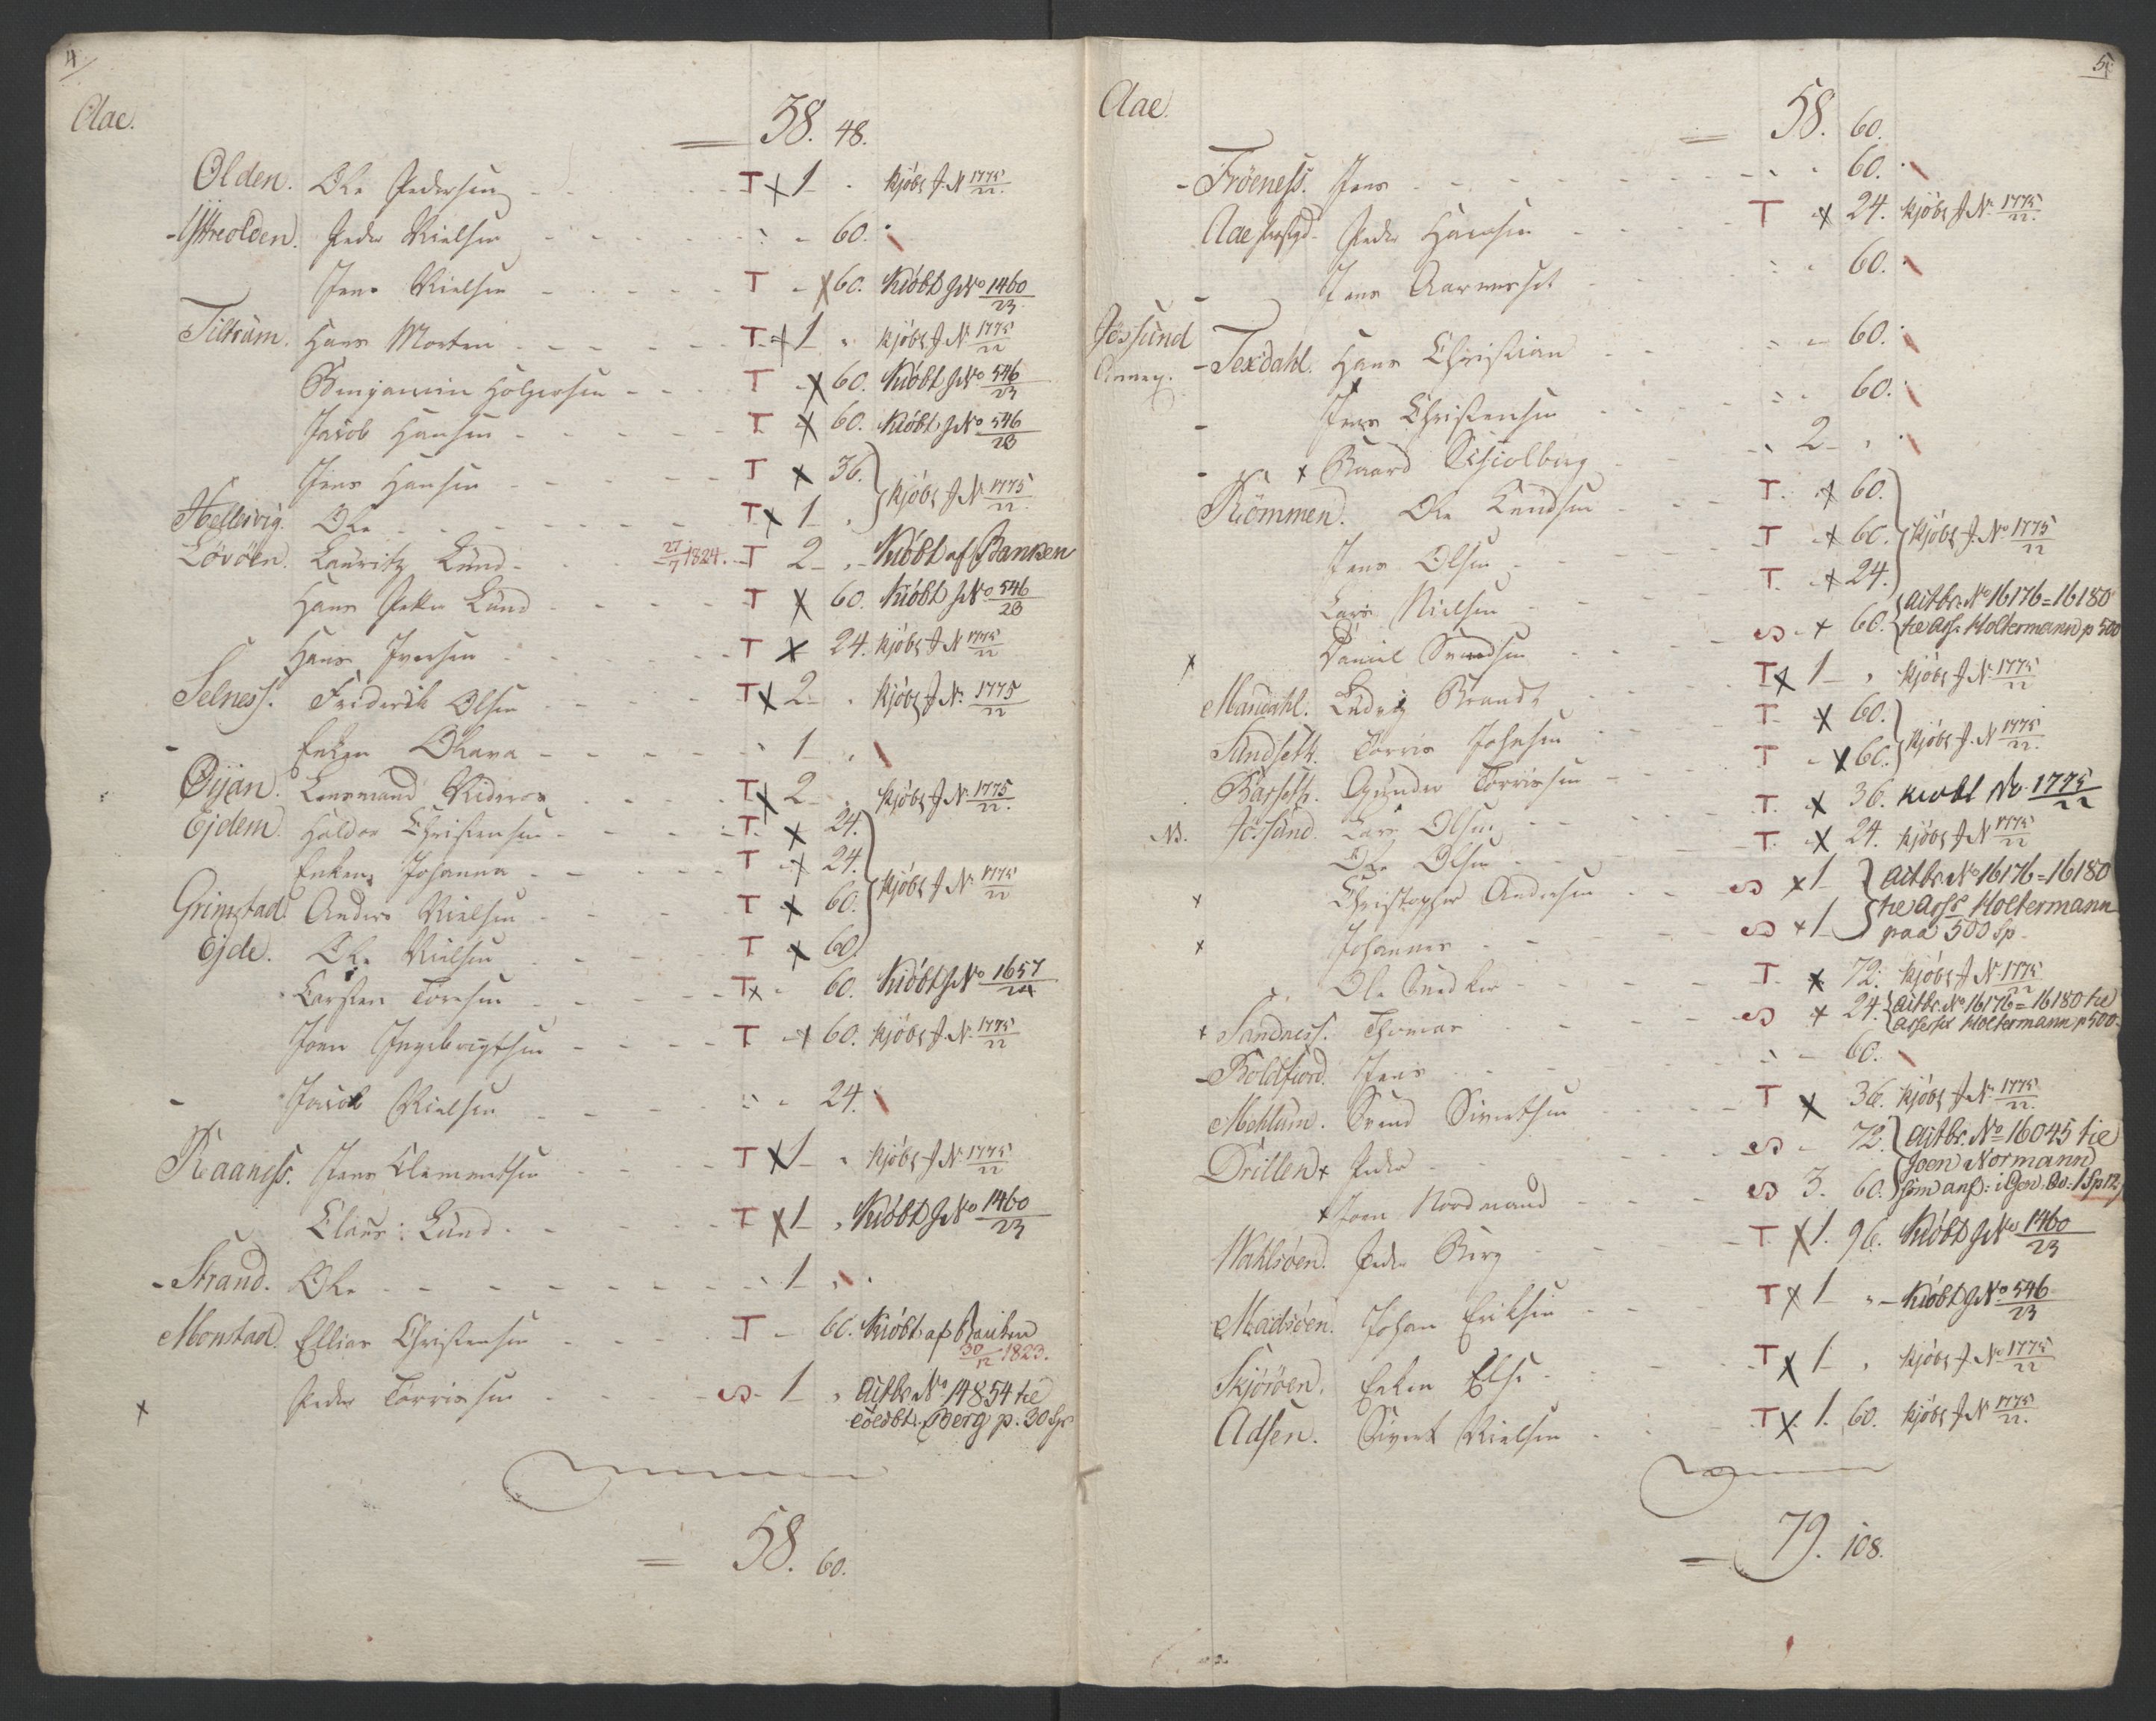 4.
Aae.
38. 48.
Olden. Ole Pedersen - T x 1 - kjøbt J. N 1775/22.
- Yttreolden. Peder Nielsen - 60.
Jens Nielsen - T - x 60. Kiöbt J No 1460/23.
Tiltrum. Hans Morten - T x 1 " kjøbt J. N. 1775/22
Bengiamin Holgersen - T - x 60. Kiöbt J No 546/23
Jacob Hansen - T x 60. Kiöbt J No 546/23
Jens Hansen - T x 36.
Hellesvig. Ole - T x 1 " kjøbt J N. 1775/22.
Lövöen. Lauritz Lund - 27/7 1824. T 2 - " - Kiöbt af Banken
Hans Petter Lund - T x 60. Kiöbt J No 546/23
Hans Iversen - T x 24. kjøbt J N 1775/22
Selness. Friderik Olsen - T x 2 - " kjøbt J N. 1775/22
- Enken Olava - 1 "
Öijan. Lensmand Rideros - T x 2 - kjøbt J N. 1775/22.
Ejdem. Haldor Christensen - T. x 24.
Enken Johanna - T x 24.
Grimstad. Anders Nielsen - T x 60. kjøbt J N. 1775/22
Ejde. Ole Nielsen - T x 60.
Carsten Töresen - T x - 60. Kiöbt J No 1657/24
Joen Ingebrigtsen - T - x 60. kjøbt J. N. 1775/22
- Jacob Nielsen - 24.
Raaness. Jens Clementsen - T x 1 - " kjøbt J N. 1775/22
Claus Lund - T x 1 - " Kiöbt J No 1460/23
- Strand. Ole - 1 "
Monstad. Ellias Christensen - T - 60. Kiöbt af Banken
30/12 1823.
x Peder Torrissen - S - 1 " Actbr. No 14854 til
Coldbt. Berg p. 30 Sp
= 58. 60.
5.
Aae.
= 58. 60.
- Fröeness. Jens - 60.
Aae Præstgd. Peder Hansen - T x 24. kjøbt J N. 1775/22.
- Jens Aarnesset - 60.
Jössund
Annex. - Texdahl. Hans Christian - 60.
- Jens Christensen - 60.
- x Baard Schiolberg - 2 - "
Römmen. Ole Knudsen - T. x 60.
Jens Olsen - T x 60. kjøbt J. No 1775/22
Lars Nielsen - T. x 24.
x Daniel Svendsen - S - x 60. Actbr. No 16176 = 16180 til Ass. Holtermann p 500
Mandahl. Ludvig Brandt - T x 1 - " kjøbt J N. 1775/22
Sundseth. Torris Johnsen - T x 60.
Barseth. Gunder Torrissen - T - x 60. kjøbt J. N 1775/22.
NB. Jössund. Lars Olsen - T. x 36. kiobt No. 1775/22
Ole Olsen - T. x 24. kjøbt J N 1775/22
x Christopher Andersen - S x 1 - Actbr. No 16176 = 16180
x Johannes - S x 1 - til Assr. Holtermann
paa 500 Sp.
Ole - T. x 72. kjøbt J N. 1775/22
x Sandness. Thomas - S x 24. Actbr. No 16176 = 16180 til
Assessor Holtermann p 500.
- Boldfiord. Jens - 60.
Mehlum. Svend Sivertsen - T x 36. kjøbt J N. 1775/22.
Drillen x Peder - S - 72. Actbr. No 16045 til
Joen Normann
x Joen Nordmand - S 3. 60. som anf: i Gen. Qv. 1 Sp 12
Wahlsöen. Peder Berg - T. x 1. 96. Kiöbt J No 1460/23
Madsöen. Johan Eriksen - T x 1 " - Kiöbt J No 546/23
Skjöröen. Enken Else - T x 1 - " kjøbt J No 1775/22
Adsen. Sivert Nielsen - T x 1. 60. kjøbt J N 1775/22.
= 79. 108.